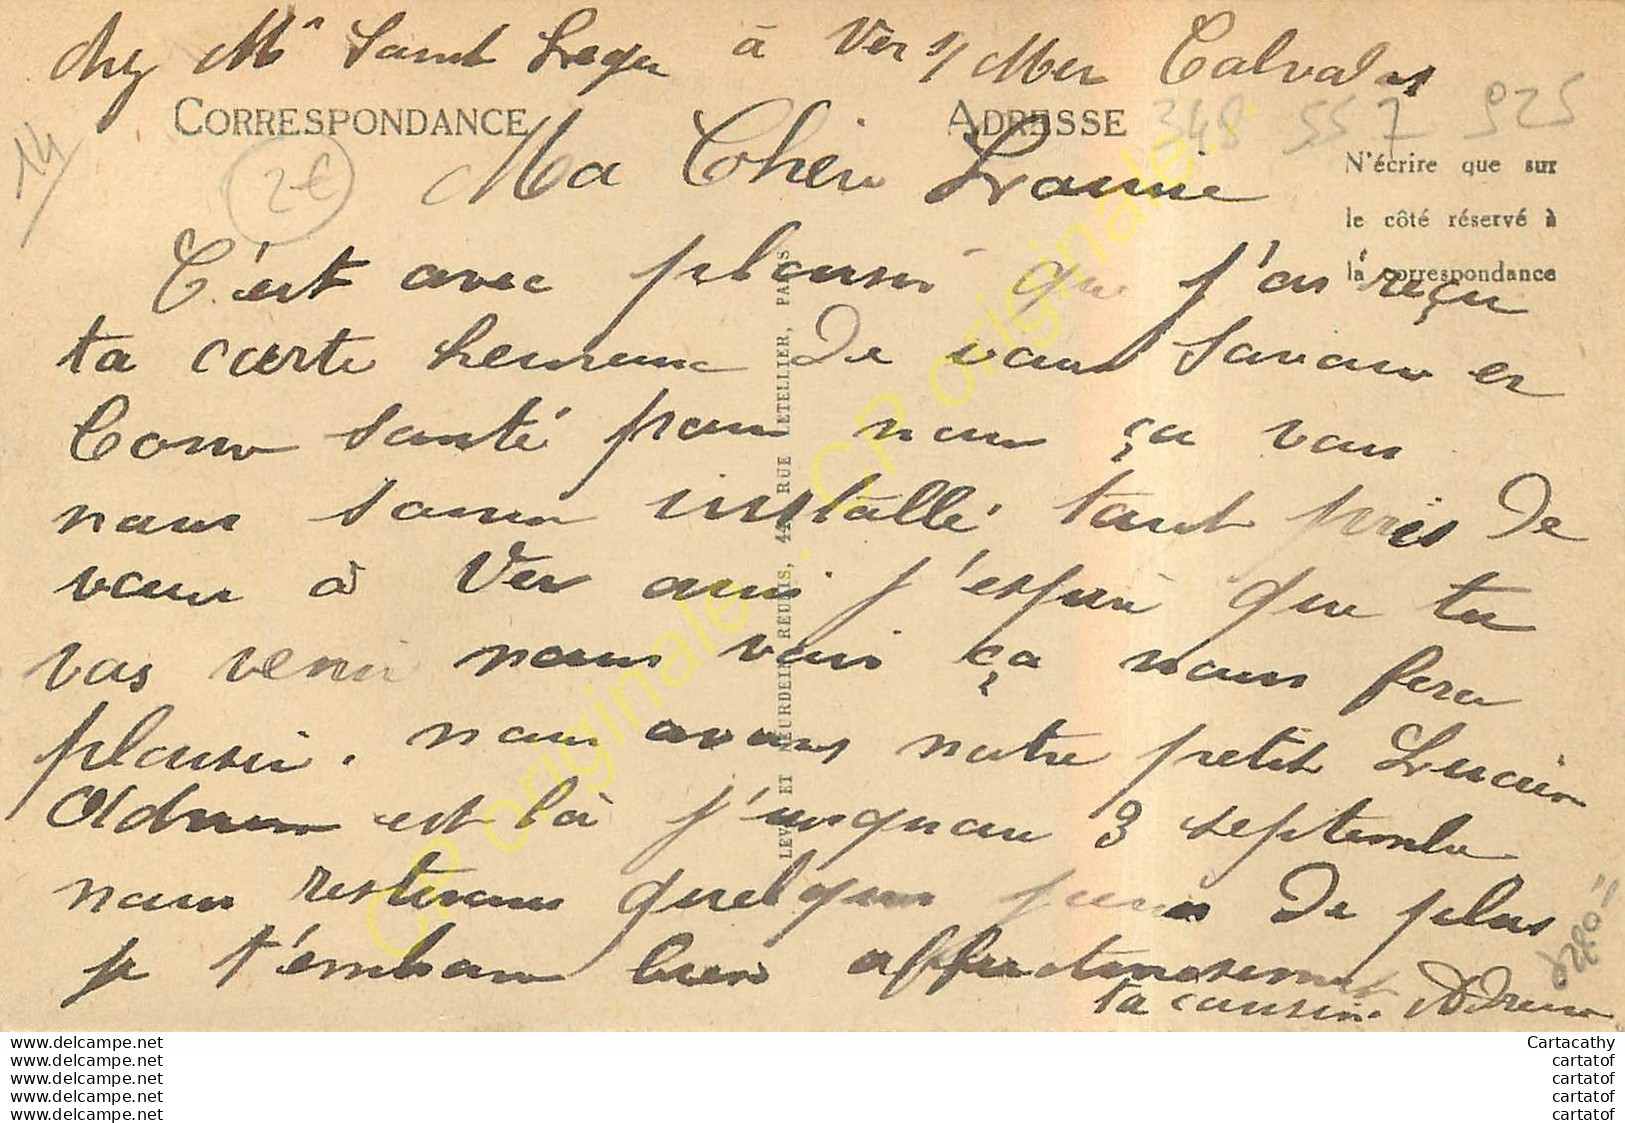 chez Mr Saint Leger à Ver s/ Mer Calvados
CORRESPONDANCE
ADRESSE
348 557 925
14
2€
N'écrire que sur
le côté réservé à
la correspondance
Ma Cheri
C'est avec plaisir que j'ai reçu
ta carte heureuse de vous savoir en
bonne santé pour nous ça va
nous sommes installé tant pris de
vous à Ver aussi j'espère que tu
vas venir nous voir ça nous fera
plaisir. nous avons notre petit Lucien
est là j'usquau 3 septembre
nous resterons quelques jours de plus
je t'embrasse bien affectueusement
ta cousine
LEVY ET NEURDEIN REUNIS, 44, RUE LETELLIER, PARIS
CP originale... CP originale... CP originale...
www.delcampe.net
www.delcampe.net
www.delcampe.net
www.delcampe.net
www.delcampe.net
Cartacathy
cartatof
cartatof
cartatof
cartatof